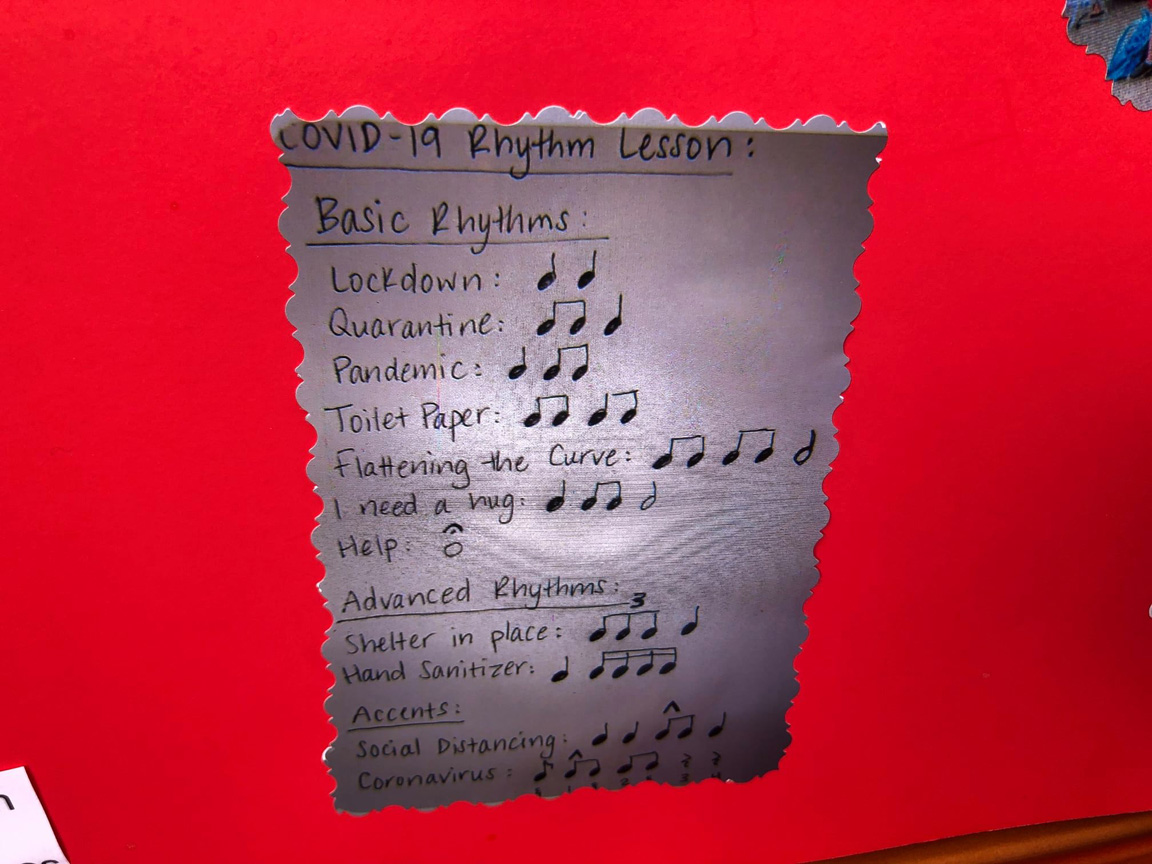 COVID-19 Rhythm Lesson:
Basic Rhythms:
Lockdown:
Quarantine:
Pandemic:
Toilet Paper:
Flattening the Curve:
I need a hug:
Help:
Advanced Rhythms:
3
Shelter in place:
Hand Sanitizer:
Accents:
Social Distancing:
Coronavirus:
n